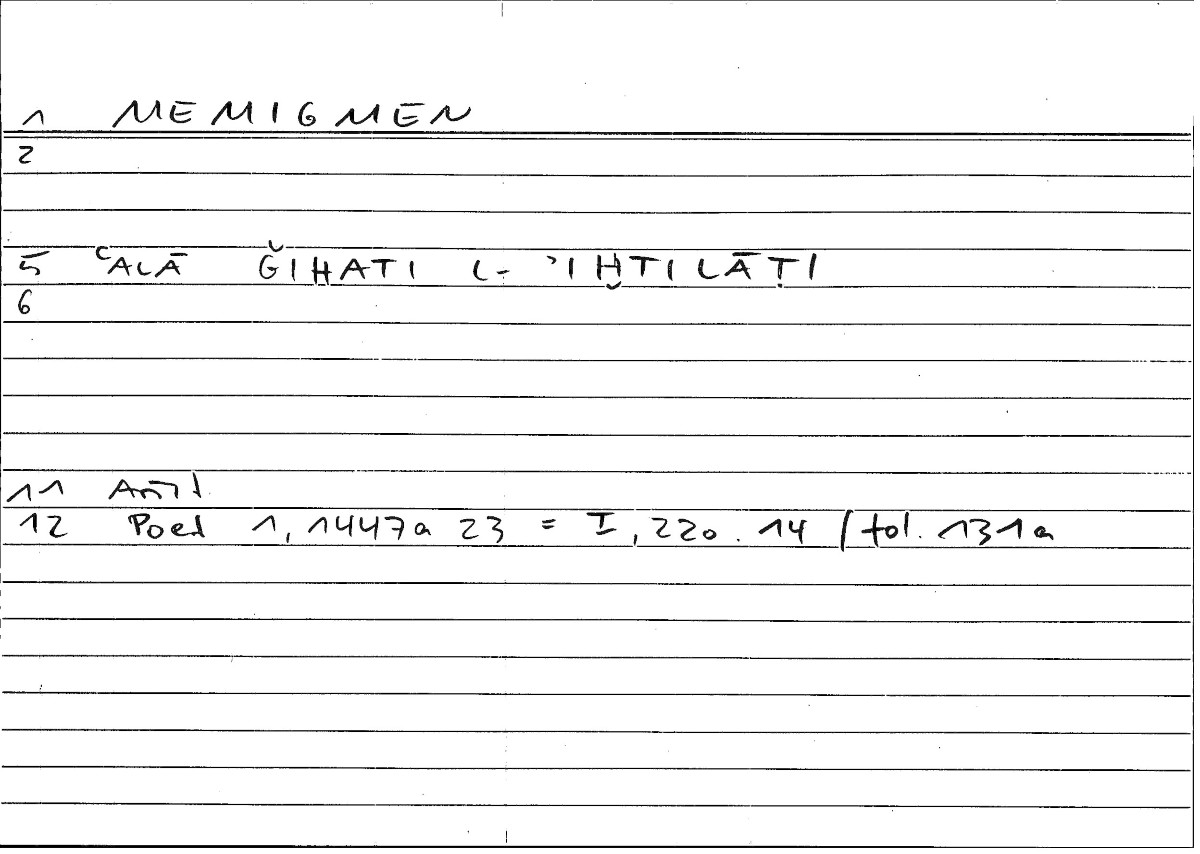 1 MEMIGMEN
2
5 ʿALĀ ǦIHATI L-ʾIḪTILĀṬI
6
11
12 Poet 1, 1447a 23 = I, 220. 14 / fol. 131a